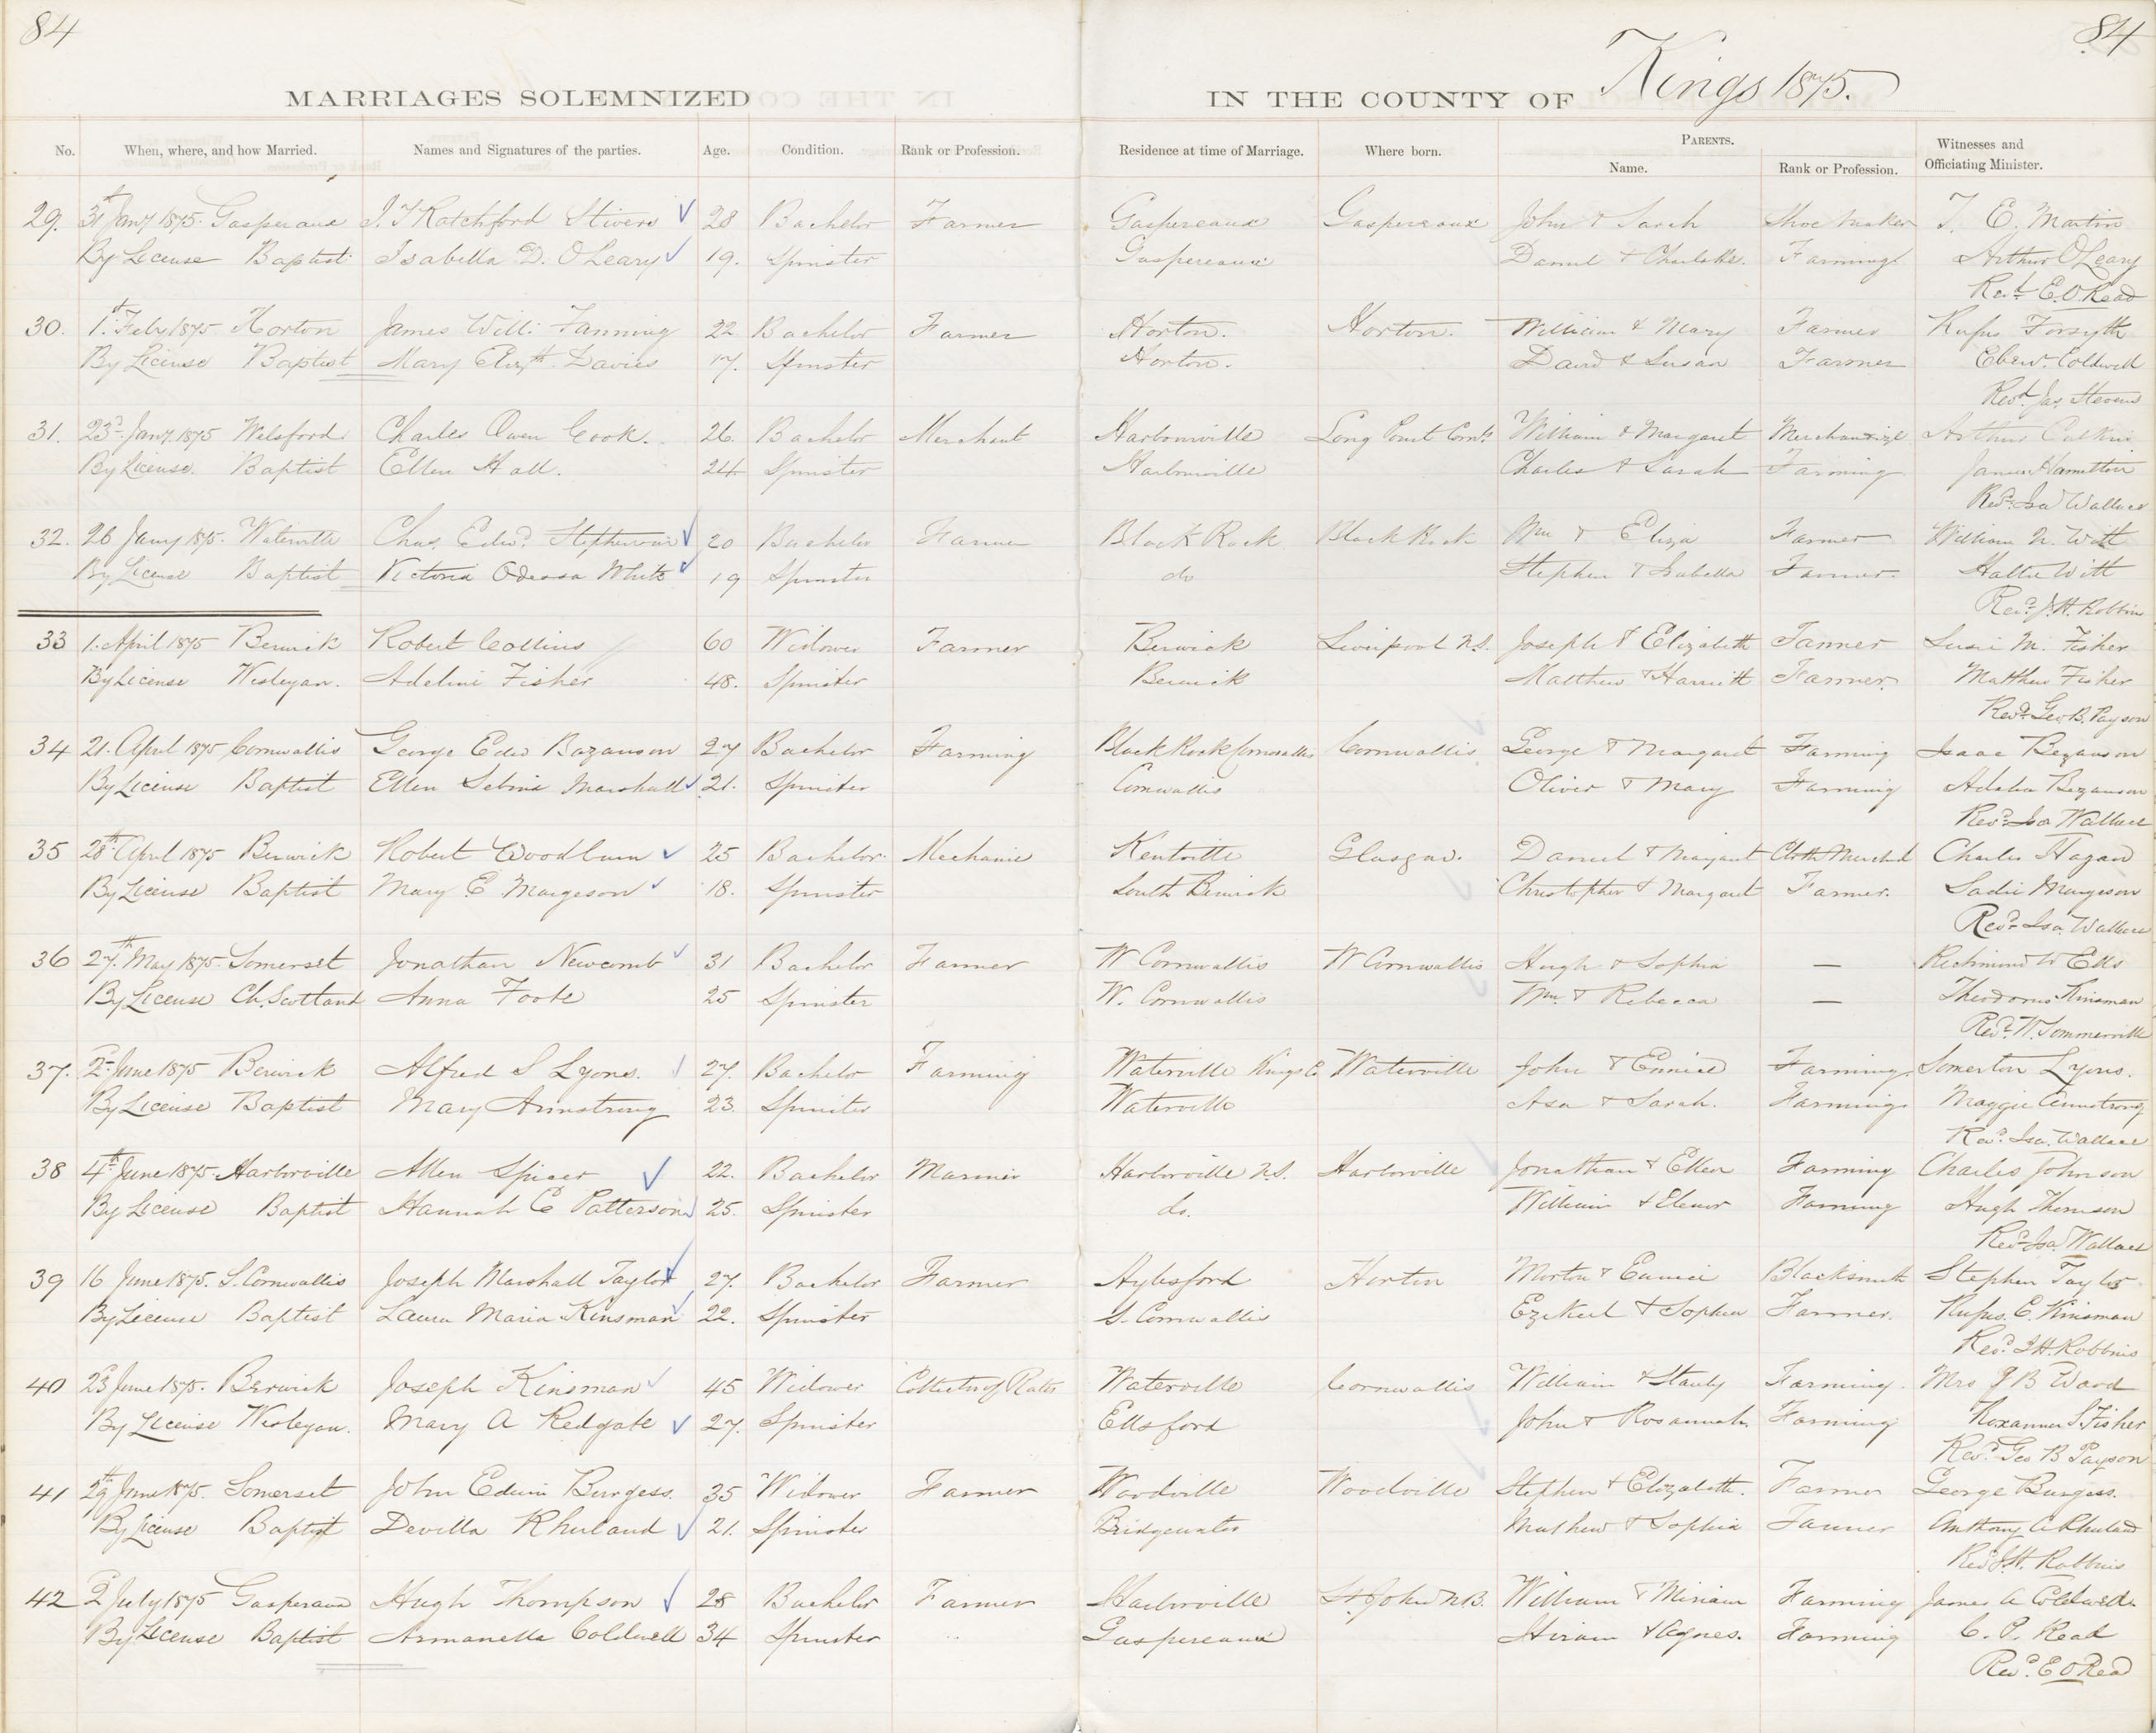 84
84
MARRIAGES SOLEMNIZED
IN THE COUNTY OF Kings 1875.
No. When, where, and how Married. Names and Signatures of the parties. Age. Condition. Rank or Profession. Residence at time of Marriage. Where born. PARENTS. Name. Rank or Profession. Witnesses and Officiating Minister.
29. 31st Jany 1875. Gasperaux J. Y Ratchford Stivers 28 Bachelor Farmer Gaspereaux Gaspereaux John & Sarah Shoe Maker T. E. Martin
By License Baptist Isabella D. OLeary 19. Spinster Gaspereaux Daniel & Charlotte. Farming Arthur OLeary
Revd E. O. Read
30. 1st Feby 1875 Horton James Willi: Fanning 22 Bachelor Farmer Horton. Horton. William & Mary Farmer Rufus Forsyth
By License Baptist Mary Elizth. Davies 17. Spinster Horton. David & Susan Farmer Ebenr. Coldwell
Revd. Jas. Stevens
31. 23d. Jany. 1875 Welsford Charles Owen Cook. 26 Bachelor Merchant Harborville Long Point Cornls William & Margaret Merchandize Arthur Calkin
By License. Baptist Ellen Hall. 24 Spinster Harborville Charles & Sarah Farming James Hamilton
Revd. Isa Wallace
32. 26 Jany 1875. Waterville Chas. Edwd. Stephenson 20 Bachelor Farmer Black Rock Black Rock Wm & Eliza Farmer William N. Witt
By License Baptist Victoria Odessa White 19 Spinster do Stephen & Isabella Farmer. Hattie Witt
Revd. J. H. Robbins
33 1. April 1875 Berwick Robert Collins 60 Widower Farmer Berwick Liverpool N.S. Joseph & Elizabeth Farmer Susie M. Fisher
By License Wesleyan. Adeline Fisher 48. Spinster Berwick Matthew & Harriett Farmer. Matthew Fisher
Revd. Geo B. Payson
34 21. April 1875 Cornwallis George Edw Bazanson 27 Bachelor Farming Black Rock Cornwallis Cornwallis George & Margaret Farming Isaac Bezanson
By License Baptist Ellen Sebina Marshall 21. Spinster Cornwallis Oliver & Mary Farming Adelia Bezanson
Revd. Isa Wallace
35 28th. April 1875 Berwick Robert Woodburn 25 Bachelor. Mechanic Kentville Glasgow. Daniel & Margaret Cloth Merchd Charles Hagan
By License Baptist Mary E. Margeson 18. Spinster South Berwick Christopher & Margaret Farmer. Sadie Margeson
Revd. Isa. Wallace
36 27.th May 1875. Somerset Jonathan Newcomb 31 Bachelor Farmer W Cornwallis W Cornwallis Hugh & Sophia — Richmond W Ells
By License Ch. Scotland Anna Foote 25 Spinster W. Cornwallis Wm. & Rebecca — Theodorus Kinsman
Revd. W. Sommerville
37. 2d June 1875 Berwick Alfred S Lyons. 27. Bachelor Farming Waterville Kings Co Waterville John & Eunice Farming. Somerton Lyons.
By License Baptist Mary Armstrong 23. Spinster Waterville Asa & Sarah. Farming Maggie Armstrong
Revd. Isa. Wallace
38 4th June 1875. Harborville Allen Spicer 22. Bachelor Mariner Harborville N.S. Harborville Jonathan & Ellen Farming Charles Johnson
By License Baptist Hannah E Patterson 25. Spinster do. William & Elenor Farming Hugh Thomson
Revd. Isa. Wallace
39 16 June 1875. S. Cornwallis Joseph Marshall Taylor 27. Bachelor Farmer Aylesford Horton Morton & Eunice Blacksmith Stephen Taylor
By License Baptist Laura Maria Kinsman 22. Spinster S. Cornwallis Ezekiel & Sophia Farmer. Rufus. E. Kinsman
Revd. J H. Robbins
40 23d June 1875. Berwick Joseph Kinsman 45 Widower Collector of Rates Waterville Cornwallis William & Stanly Farming. Mrs J B Ward
By License Wesleyan. Mary A Redgate 27. Spinster Ellsford John & Rosannah Farming Roxanna S Fisher
Revd. Geo B Payson
41 29th June 1875. Somerset John Edwin Burgess. 35 Widower Farmer Woodville Woodville Stephen & Elizabeth. Farmer George Burgess.
By License Baptist Devilla Rhuland 21. Spinster Bridgewater Mathew & Sophia Farmer Anthony A Rhuland
Revd J. H. Robbins
42 2d July 1875 Gasperaux Hugh Thompson 28 Bachelor Farmer Harborville St. John N.B. William & Miriam Farming James A Coldwell.
By License Baptist Armanella Coldwell 34 Spinster Gaspereaux Hiram & Agnes. Farming C. P. Read
Revd. E O Read